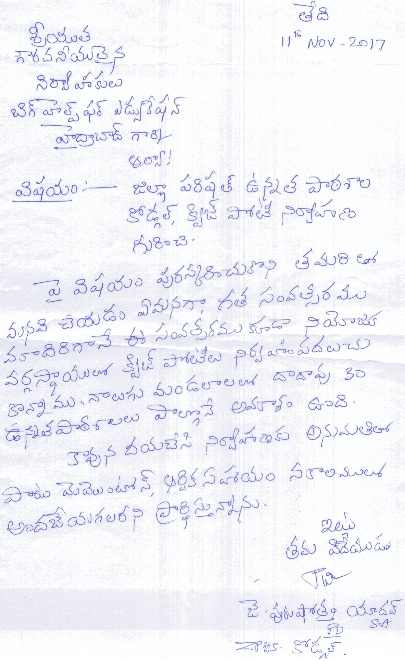 తేది
11th NOV - 2017
శ్రీయుత
గౌరవనీయులైన
నిర్వాహకులు
బిగ్ హెల్ప్ ఫర్ ఎడ్యుకేషన్
హైద్రాబాద్ గార్కి
ఆర్యా!
విషయం:— జిల్లా పరిషత్ ఉన్నత పాఠశాల
కోడ్గల్, క్విజ్ పోటీ నిర్వాహణ
గురించి.
పై విషయం పురస్కరించుకొని తమరితో
మనవి చేయడం ఏమనగా గత సంవత్సరము
మాదిరిగానే ఈ సంవత్సరము కూడా నియోజక
వర్గస్థాయిలో క్విజ్ పోటీలు నిర్వహింపదలుచు
కొన్నాము. నాలుగు మండలాలలో దాదాపు 30
ఉన్నతపాఠశాలలు పాల్గొనే అవకాశం ఉంది.
కావున దయచేసి నిర్వాహణకు అనుమతితో
పాటు మెమెంటోస్, ఆర్థిక సహాయం సకాలములో
అందజేయగలరని ప్రార్థిస్తున్నాను.
ఇట్లు
తమ విధేయుడు
జె. పురుషోత్తం యాదవ్
కోడ్గల్.